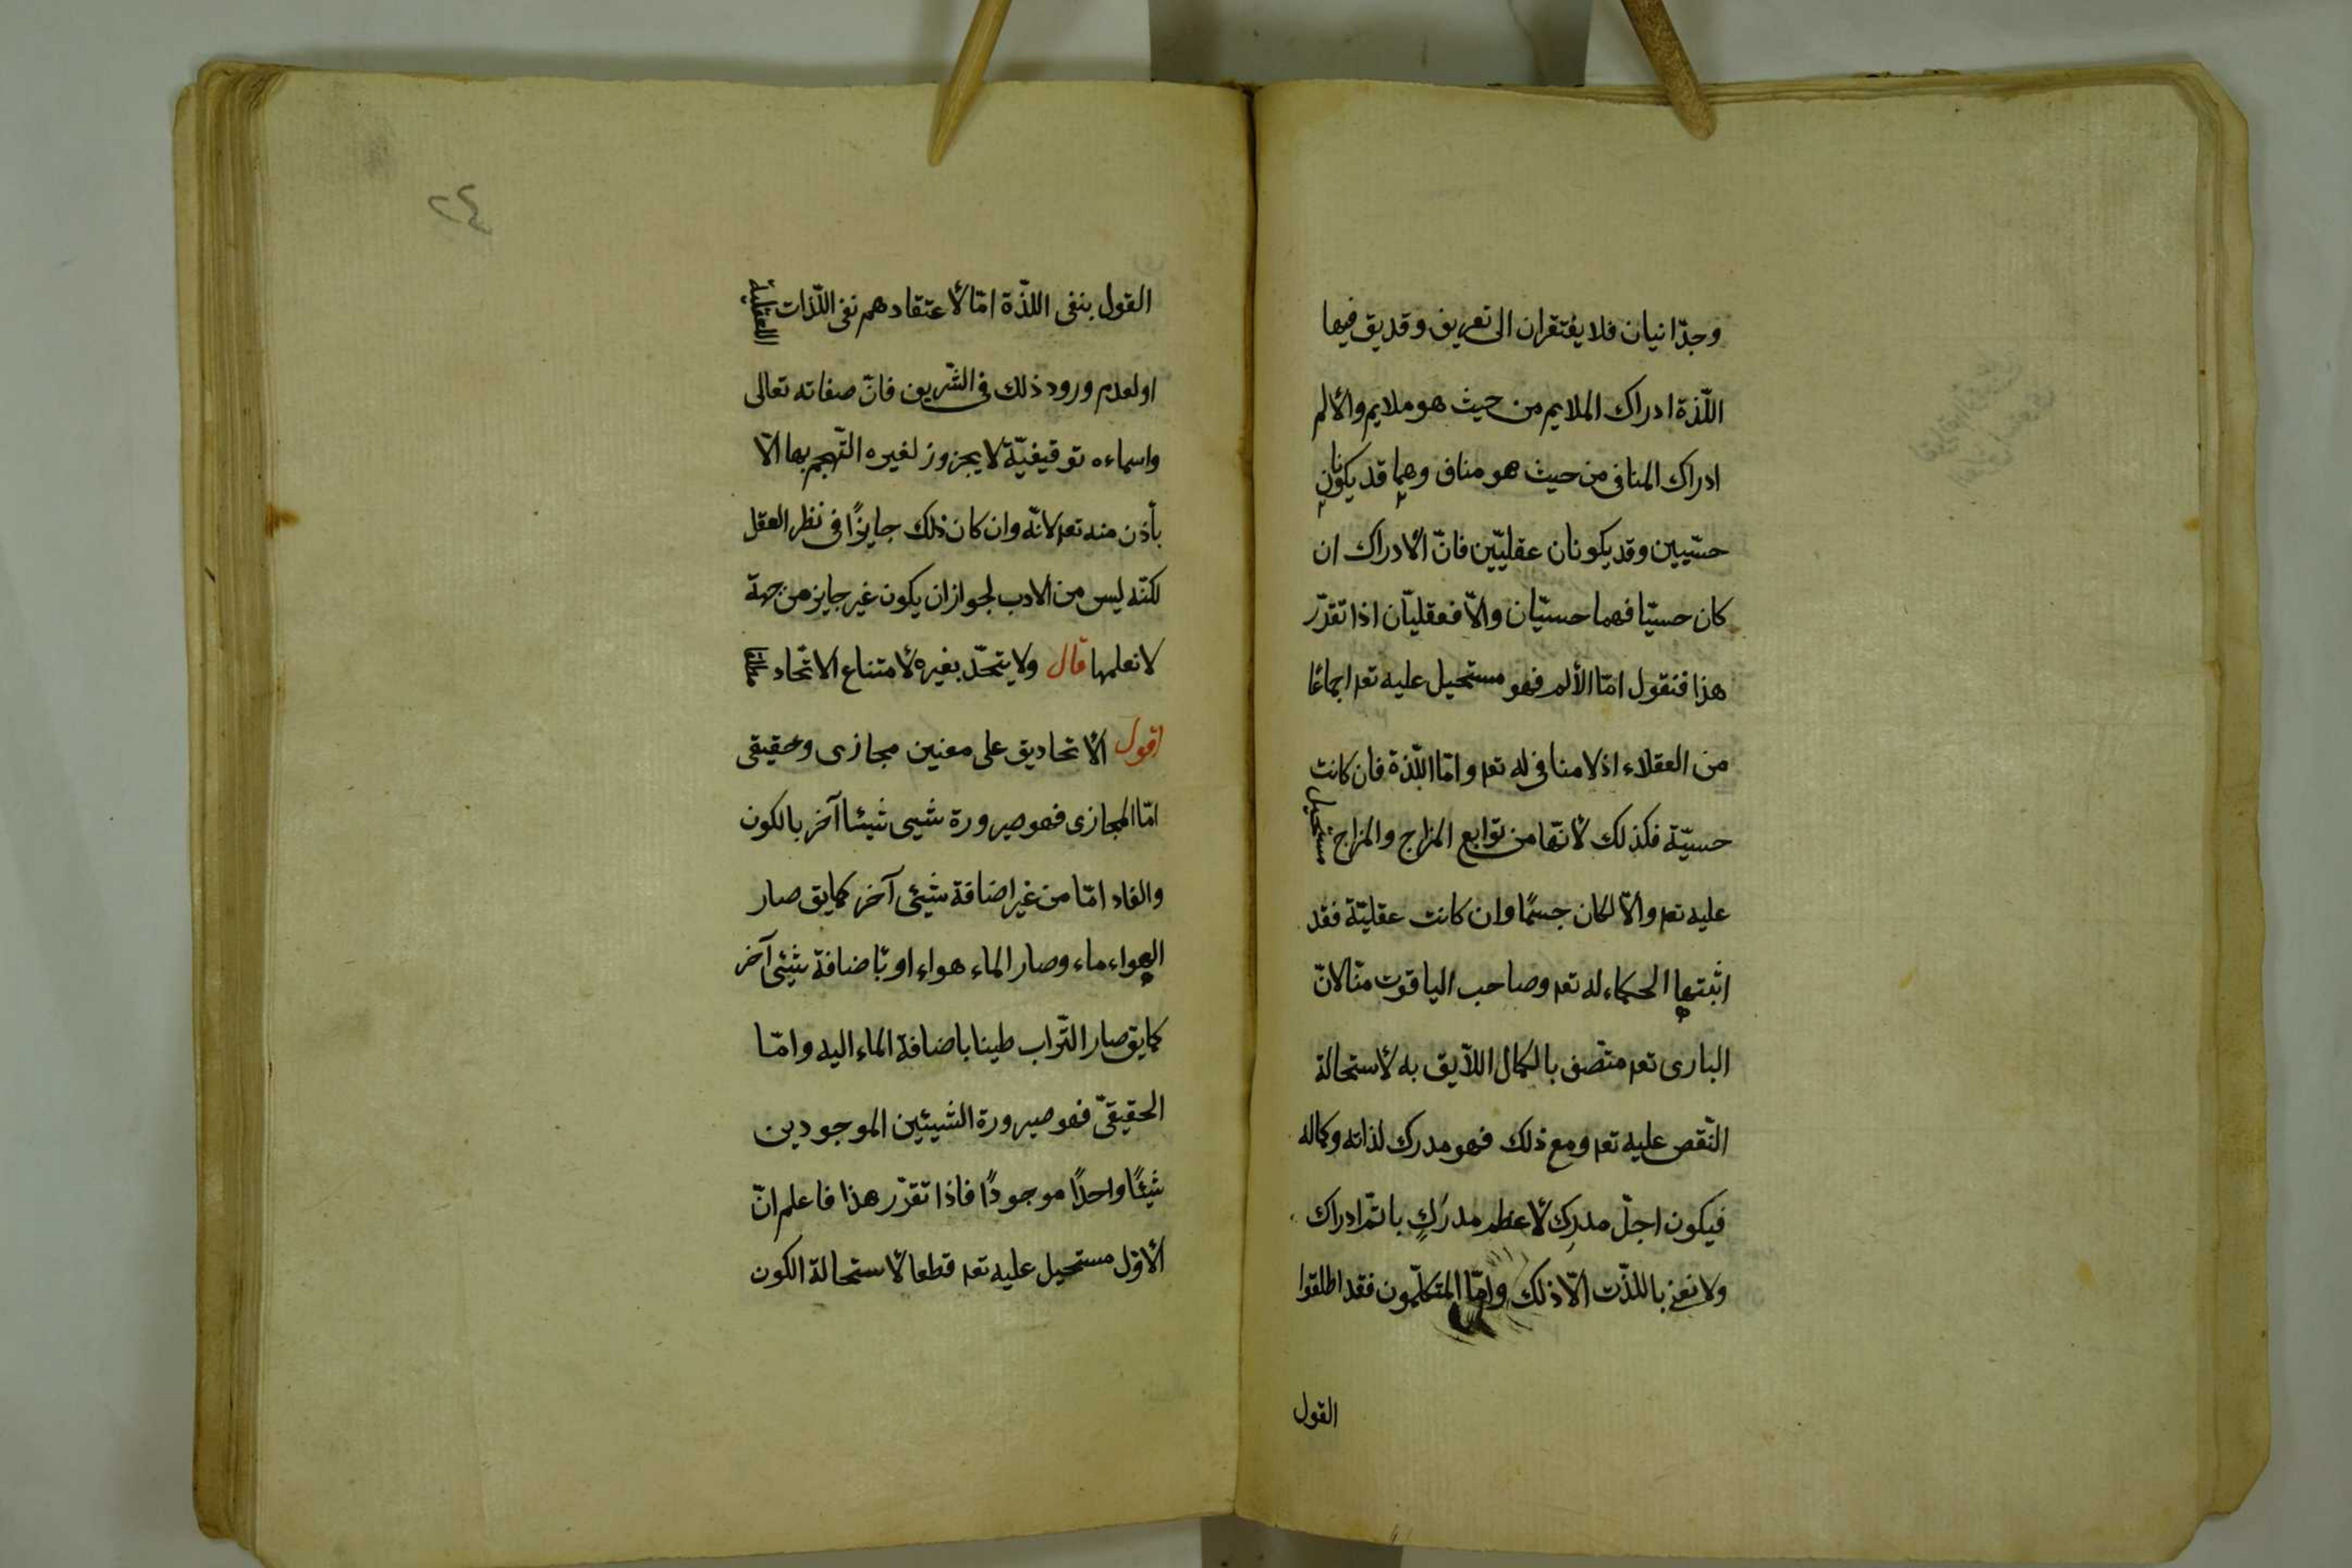 وجدّانيان فلا يفتقران الى تعريف وقد يق فيها
اللّذة ادراك الملايم من حيث هو ملايم والألم
ادراك المنافى من حيث هو مناف وهما قد يكونان
حسّيين وقد يكونان عقليّين فانّ الأدراك ان
كان حسيّا فهما حسيّان والّا فعقليّان اذا تقرّر
هذا فنقول امّا الألم فهو مستحيل عليه تعه اجماعًا
من العقلاء اذ لا منافى له تعه وامّا اللّذة فان كانت
حسيّة فكذلك لأنّها من توابع المزاج والمزاج مستحيل
عليه تعه والّا لكان جسمًا وان كانت عقليّة فقد
اثبتها الحكماء له تعه وصاحب الياقوت منّا لانّ
البارى تعه متّصف بالكمال اللّايق به لأستحالة
النّقص عليه تعه ومع ذلك فهو مدرك لذاته وكماله
فيكون اجلّ مدرِك لأعظم مدرَكٍ باتمّ ادراك
ولا نعنى باللذّت الّا ذلك وامّا المتكلّمون فقد اطلقوا
القول
٢٤
القول بنفى اللذّة امّا لأعتقادهم نفى اللّذات العقليّة
او لعدم ورود ذلك فى الشّريف فانّ صفاته تعالى
واسماءه توقيفيّة لا يجزوز لغيره التّهجم بها الّا
بأذن منه تعه لانّه وان كان ذلك جايزًا فى نظر العقل
لكنّه ليس من الادب لجواز ان يكون غير جايز من جهة
لا نعلمها قال ولا يتحدّ بغيره لأمتناع الاتّحاد مطلقا
اقول الأتحاد يق على معنين مجازى وحقيقى
امّا المجازى فهو صيرورة شيى شيئا آخر بالكون
والفاد امّا من غير اضافة شيئى آخر كما يق صار
الهواء ماء وصار الماء هواء او بأضافة شيئى آخر
كما يق صار التّراب طينا باضافة الماء اليه وامّا
الحقيقىّ فهو صيرورة الشيئين الموجودين
شيئًا واحدًا موجودًا فاذا تقرّر هذا فاعلم انّ
الأوّل مستحيل عليه تعه قطعا لأستحالة الكون